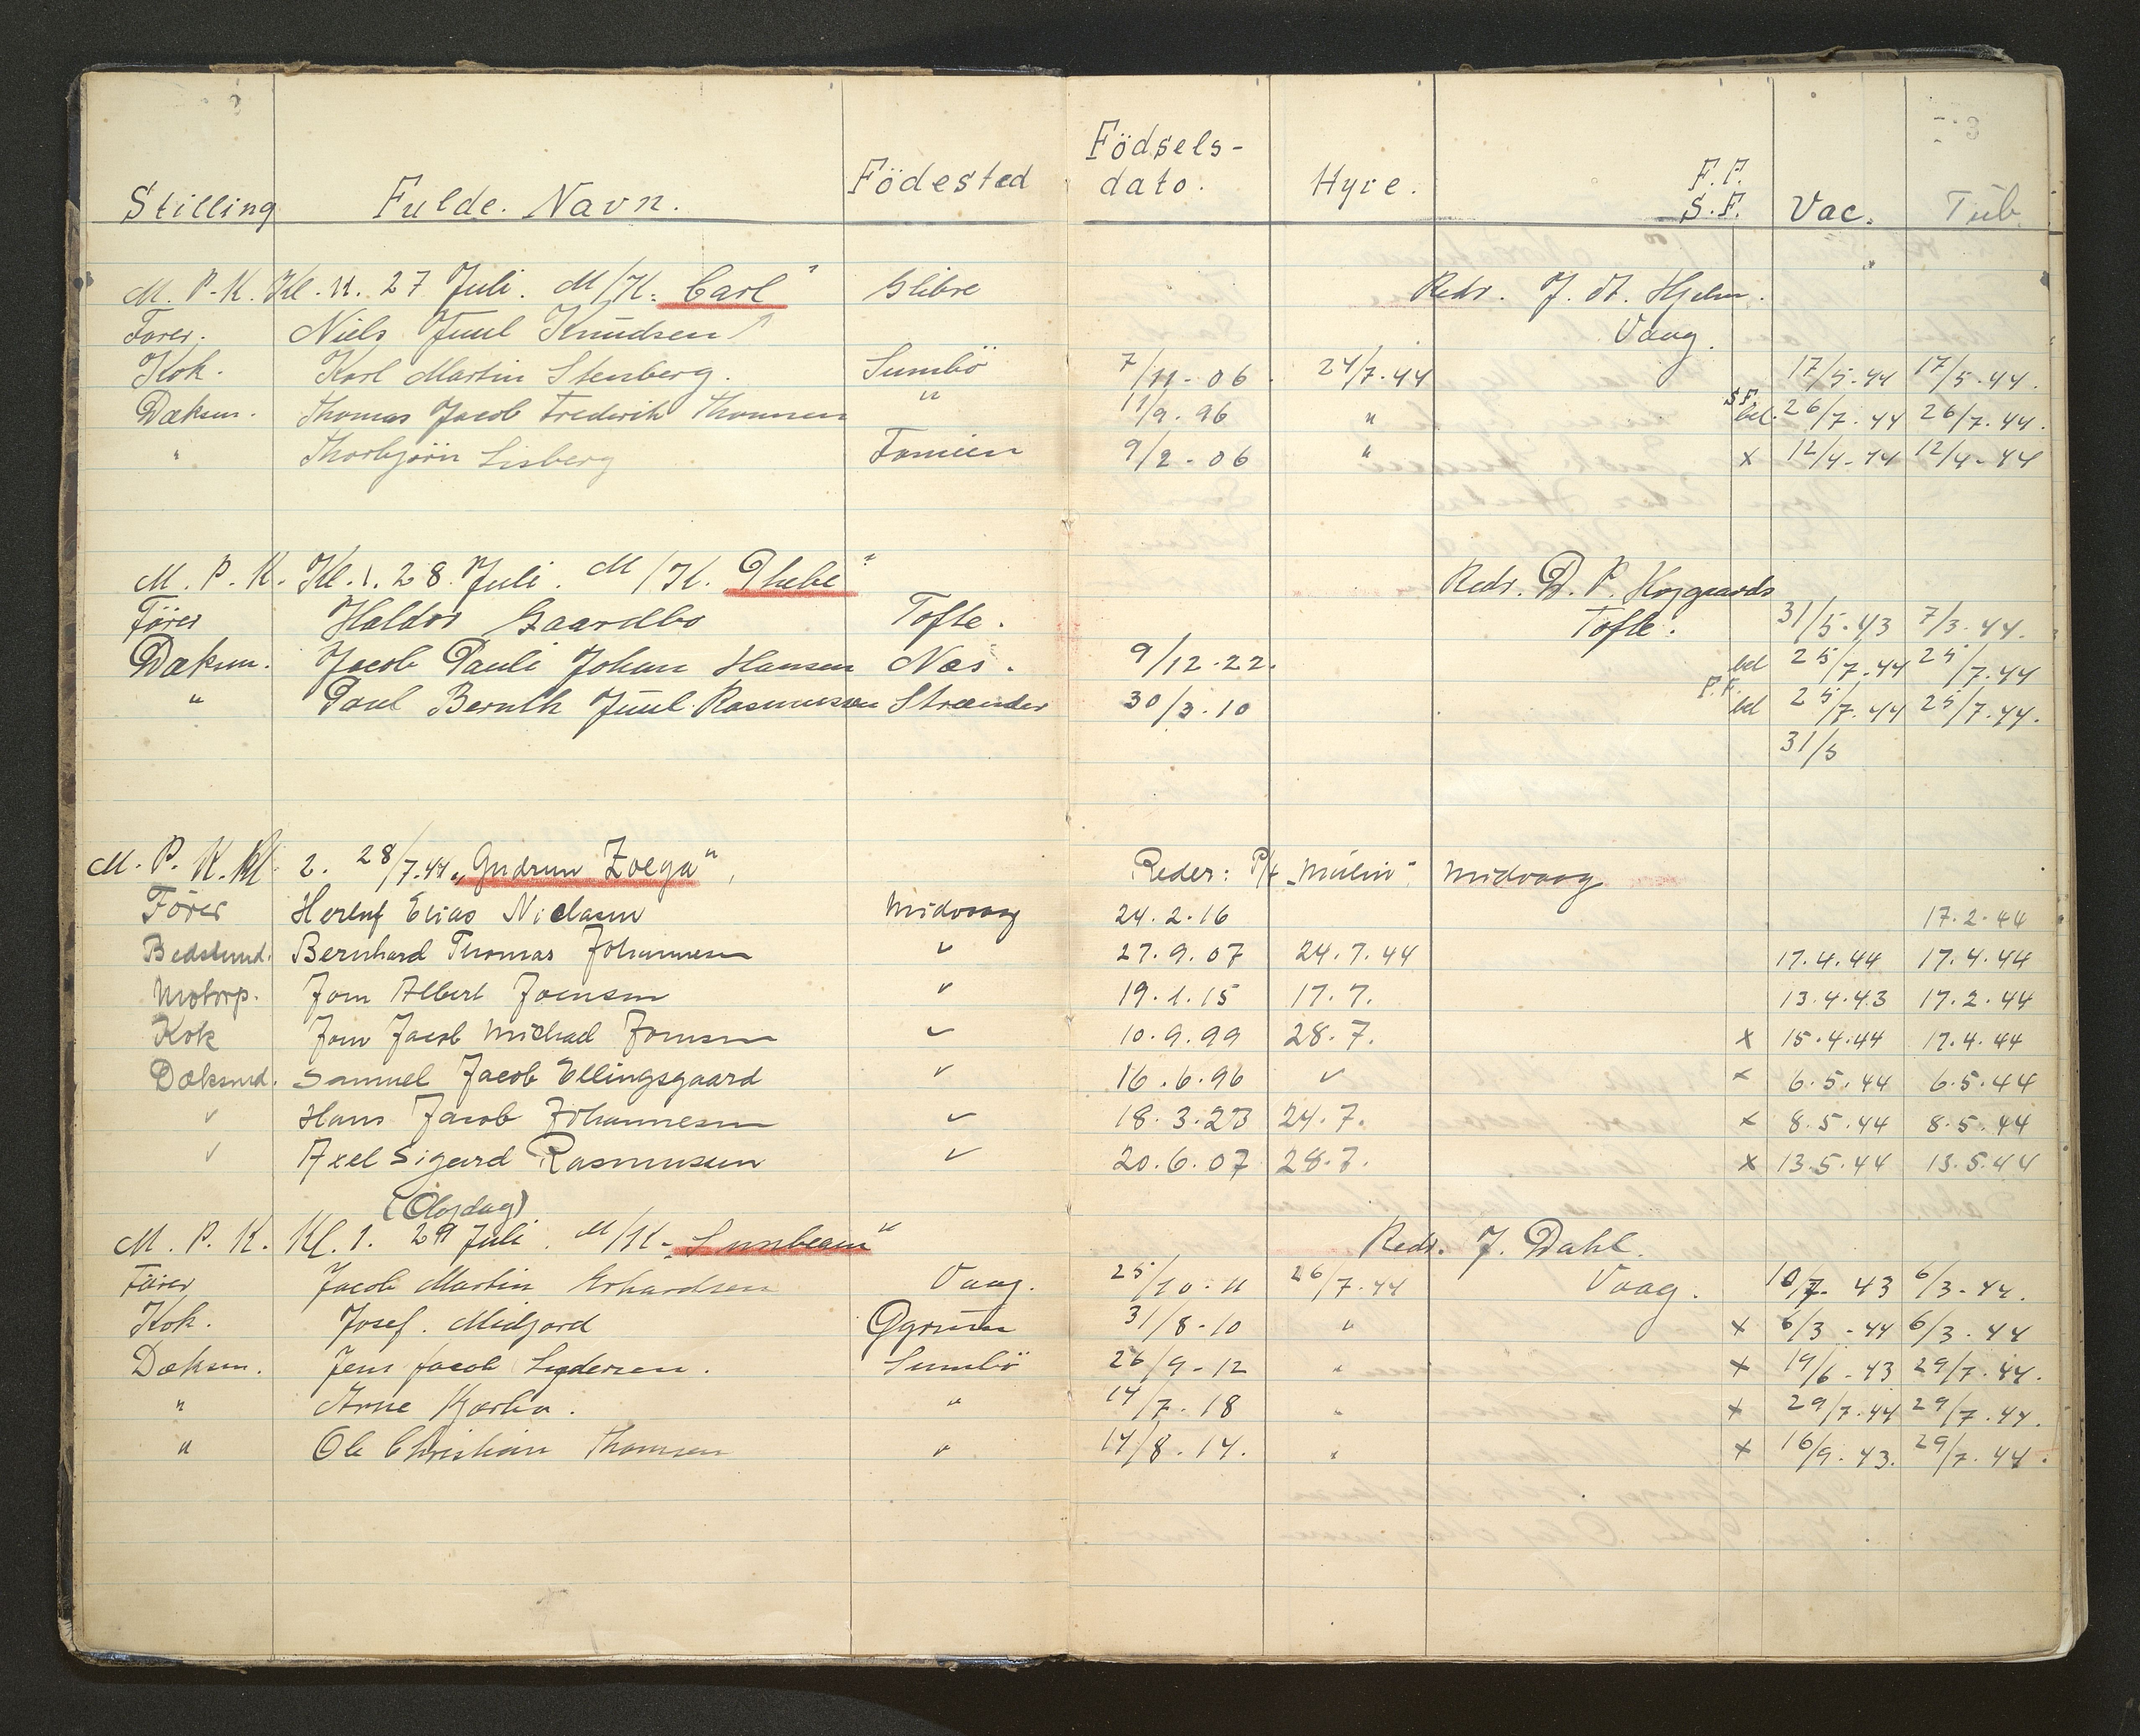 Stilling Fulde. Navn. Födested Födsels-dato. Hyre. F.F. S.F. Vac. Tub.
M. P. K. Kl. 11. 27 Juli. M/K. „Carl" Glibre Redr. J. H. Hjelm.
Fører. Niels Juul Knudsen Vaag.
Kok. Karl Martin Stenberg. Sumbö 7/11-06. 24/7.44 17/5-44 17/5-44.
Dæksm. Thomas Jacob Frederik Thomsen " 11/9. 96 " S.F. bel. 26/7.44 26/7.44.
" Thorbjörn Lisberg Famien 9/2-06 " x 12/4-44 12/4-44
M. P. K. Kl. 1. 28. Juli. M/K. „Thebe" Redr. D. P. Højgaards
Förer Haldor Gaardbo Tofte. Tofte. 31/5-43 7/3-44.
Dæksm. Jacob Pauli Johan Hansen Næs. 9/12-22. bel 25/7.44 25/7.44
" Poul Bernth Juul Rasmussen Strænder 30/3.10 F.F. bel 25/7.44 25/7.44.
31/5
M. P. K. Kl. 2. 28/7.44 „Gudrun Zoega", Reder: P/f „Mulin" Midvaag
Förer Herluf Elias Niclasen Midvaag 24.2.16 17.2.44
Bedstmd. Bernhard Thomas Johannesen " 27.9.07 24.7.44 17.4.44 17.4.44
Motorp. Joen Albert Joensen " 19.1.15 17.7. 13.4.43 17.2.44
Kok Joen Jacob Michael Joensen " 10.9.99 28.7. x 15.4.44 17.4.44
Dæksmd. Samuel Jacob Ellingsgaard " 16.6.96 " x 6.5.44 6.5.44
" Hans Jacob Johannesen " 18.3.23 24.7. x 8.5.44 8.5.44
" Axel Sigurd Rasmussen " 20.6.07 28.7. x 13.5.44 13.5.44
(Olajdag)
M. P. K. Kl. 1. 29 Juli. M/K. „Sunbeam" Redr. J. Dahl.
Förer Jacob Martin Erhardsen Vaag. 25/10-11 26/7.44 Vaag. 10/7-43 6/3-44.
Kok. Josef. Midjord Qgrum 31/8-10 " x 6/3-44 6/3-44
Dæksm. Jens Jacob Lydersen. Sumbö 26/9-12 " x 19/6-43 29/7.44.
" Arne Kjærbo. " 14/7.18 " x 29/7.44 29/7.44.
" Ole Christian Thomsen " 14/8.14. " x 16/9.43. 29/7.44.